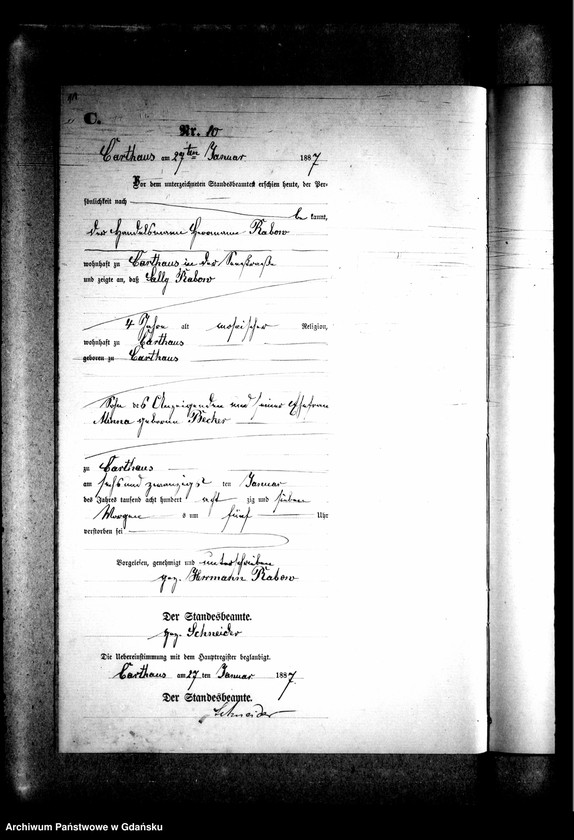 C.
Nr. 10
Carthaus am 27ten Januar 1887
Vor dem unterzeichneten Standesbeamten erschien heute, der Per-
sönlichkeit nach
be kannt,
der Handelsmann Herrmann Rabow
wohnhaft zu Carthaus in der
und zeigte an, daß Sally Rabow
4 Jahre alt mosaischer Religion,
wohnhaft zu Carthaus
geboren zu Carthaus
Sohn des Anzeigenden und seiner Ehefrau
Minna geborenen Becher
zu Carthaus
am sechs und zwanzigst ten Januar
des Jahres tausend acht hundert acht zig und sieben
Morgen s um fünf Uhr
verstorben sei
Vorgelesen, genehmigt und unterschrieben
gez. Herrmann Rabow
Der Standesbeamte.
gez. Schneider
Die Uebereinstimmung mit dem Hauptregister beglaubigt.
Carthaus am 27 ten Januar 1887
Der Standesbeamte.
Schneider
Archiwum Państwowe w Gdańsku